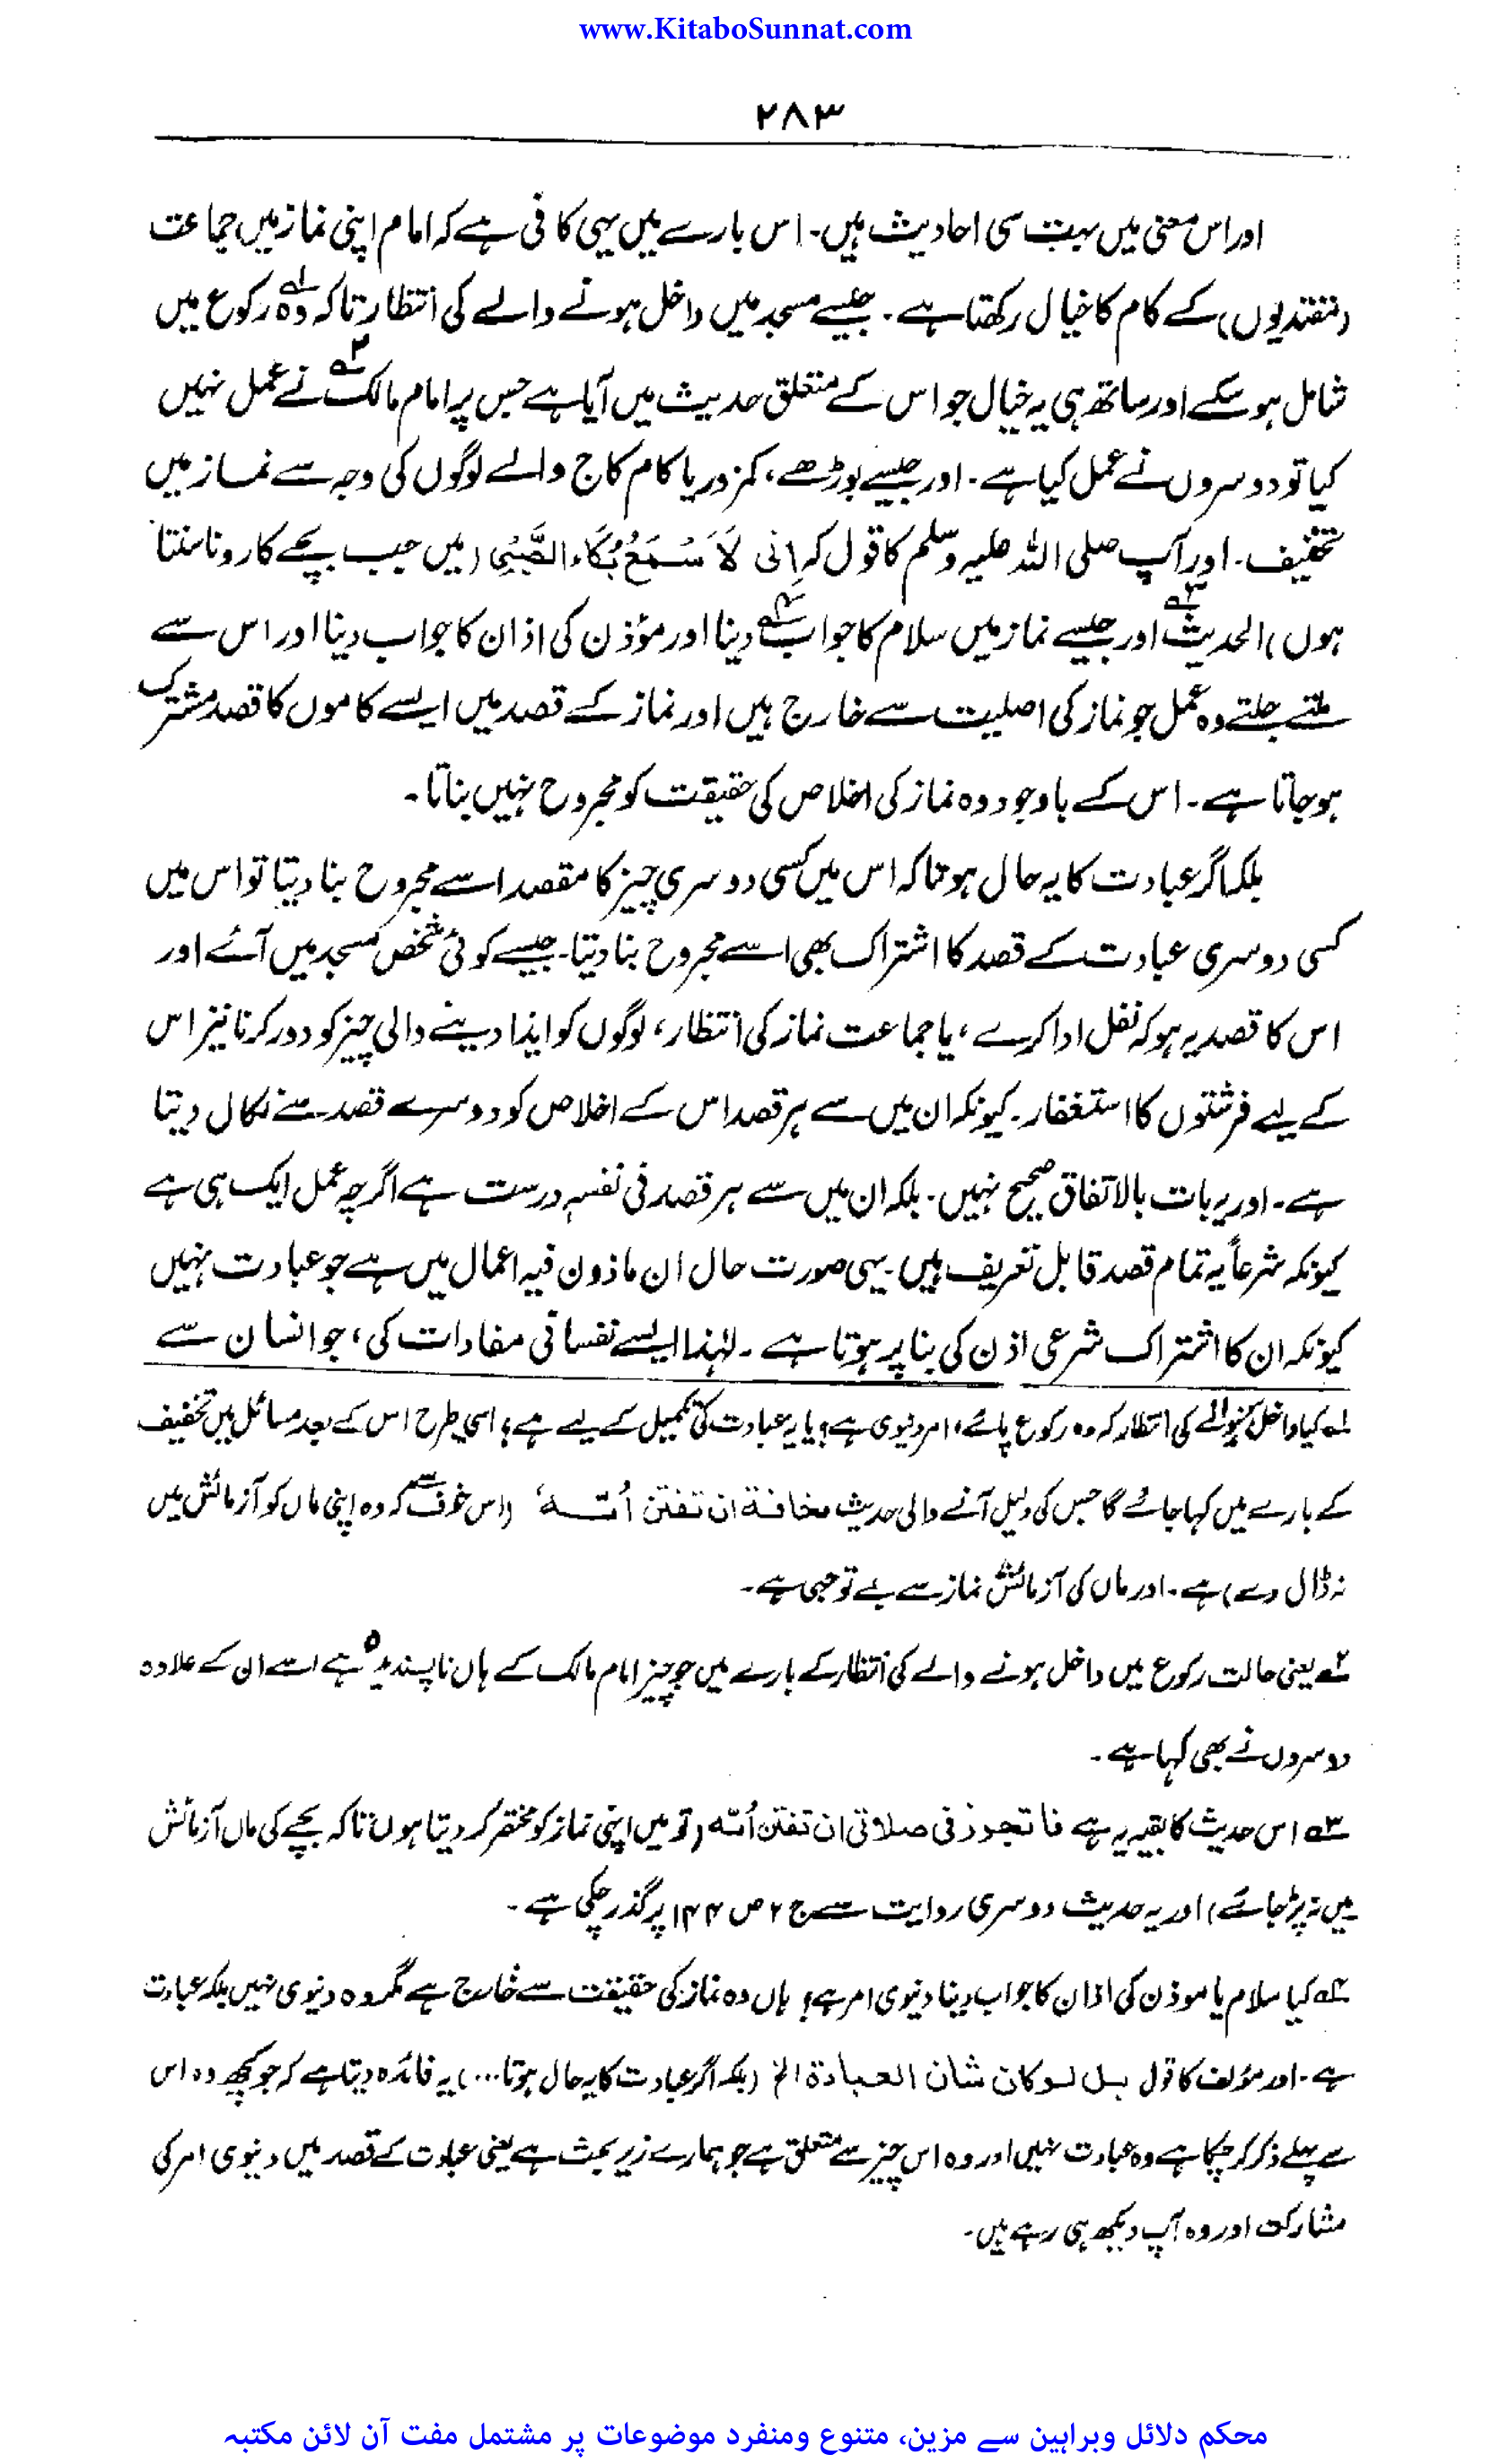 www.KitaboSunnat.com
۲۸۳
اور اس معنی میں بہت سی احادیث ہیں۔ اس بارے میں یہی کافی ہے کہ امام اپنی نماز میں جماعت
(مقتدیوں) کے کام کا خیال رکھتا ہے۔ جیسے مسجد میں داخل ہونے والے کی انتظار تاکہ وہ۱؎ رکوع میں
شامل ہو سکے اور ساتھ ہی یہ خیال جو اس کے متعلق حدیث میں آیا ہے جس پر امام مالک۲؎ نے عمل نہیں
کیا تو دوسروں نے عمل کیا ہے۔ اور جیسے بوڑھے، کمزور یا کام کاج والے لوگوں کی وجہ سے نماز میں
تخفیف۔ اور آپ صلی اللہ علیہ وسلم کا قول کہ اِنی لَاَسْمَعُ بُكَاءَ الصَّبِيِّ (میں جب بچے کا رونا سنتا
ہوں) الحدیث۳؎ اور جیسے نماز میں سلام کا جواب۴؎ دینا اور مؤذن کی اذان کا جواب دینا اور اس سے
ملتے جلتے وہ عمل جو نماز کی اصلیت سے خارج ہیں اور نماز کے قصد میں ایسے کاموں کا قصد مشترک
ہو جاتا ہے۔ اس کے باوجود وہ نماز کی اخلاص کی حقیقت کو مجروح نہیں بناتا۔
بلکہ اگر عبادت کا یہ حال ہوتا کہ اس میں کسی دوسری چیز کا مقصد اسے مجروح بنا دیتا تو اس میں
کسی دوسری عبادت کے قصد کا اشتراک بھی اسے مجروح بنا دیتا۔ جیسے کوئی شخص مسجد میں آئے اور
اس کا قصد یہ ہو کہ نفل ادا کرے، یا جماعت نماز کی انتظار، لوگوں کو ایذا دینے والی چیز کو دور کرنا نیز اس
کے لیے فرشتوں کا استغفار۔ کیونکہ ان میں سے ہر قصد اس کے اخلاص کو دوسرے قصد سے نکال دیتا
ہے۔ اور یہ بات بالاتفاق صحیح نہیں۔ بلکہ ان میں سے ہر قصد فی نفسہٖ درست ہے اگرچہ عمل ایک ہی ہے
کیونکہ شرعاً یہ تمام قصد قابل تعریف ہیں۔ یہی صورت حال ان ماذون فیہ اعمال میں ہے جو عبادت نہیں
کیونکہ ان کا اشتراک شرعی اذن کی بنا پر ہوتا ہے۔ لہٰذا ایسے نفسانی مفادات کی، جو انسان سے
۱؎ کیا داخل ہونیوالے کی انتظار کہ وہ رکوع پائے، امر دنیوی ہے؟ یا یہ عبادت کی تکمیل کے لیے ہے؟ اسی طرح اس کے بعد مسائل میں تخفیف
کے بارے میں کہا جائے گا جس کی دلیل آنے والی حدیث مخافة ان تفتن اُمّہ (اس خوف سے کہ وہ اپنی ماں کو آزمائش میں
نہ ڈال دے) ہے۔ اور ماں کی آزمائش نماز سے بے توجہی ہے۔
۲؎ یعنی حالت رکوع میں داخل ہونے والے کی انتظار کے بارے میں جو چیز امام مالک کے ہاں ناپسندیدہ ہے اسے ان کے علاوہ
دوسروں نے بھی کہا ہے۔
۳؎ اس حدیث کا بقیہ یہ ہے فاتجوز فی صلاتی ان تفتن اُمّه (تو میں اپنی نماز کو مختصر کر دیتا ہوں تاکہ بچے کی ماں آزمائش
میں نہ پڑ جائے) اور یہ حدیث دوسری روایت سے ج ۲ ص ۱۴۴ پر گذر چکی ہے۔
۴؎ کیا سلام یا موذن کی اذان کا جواب دینا دنیوی امر ہے؟ ہاں وہ نماز کی حقیقت سے خارج ہے مگر وہ دنیوی نہیں بلکہ عبادت
ہے۔ اور مؤلف کا قول بل لو کان شان العبادة الخ (بلکہ اگر عبادت کا یہ حال ہوتا...) یہ فائدہ دیتا ہے کہ جو کچھ وہ اس
سے پہلے ذکر کر چکا ہے وہ عبادت نہیں اور وہ اس چیز سے متعلق ہے جو ہمارے زیر بحث ہے یعنی عبادت کے قصد میں دنیوی امر کی
مشارکت اور وہ آپ دیکھ ہی رہے ہیں۔
محکم دلائل وبراہین سے مزین، متنوع ومنفرد موضوعات پر مشتمل مفت آن لائن مکتبہ